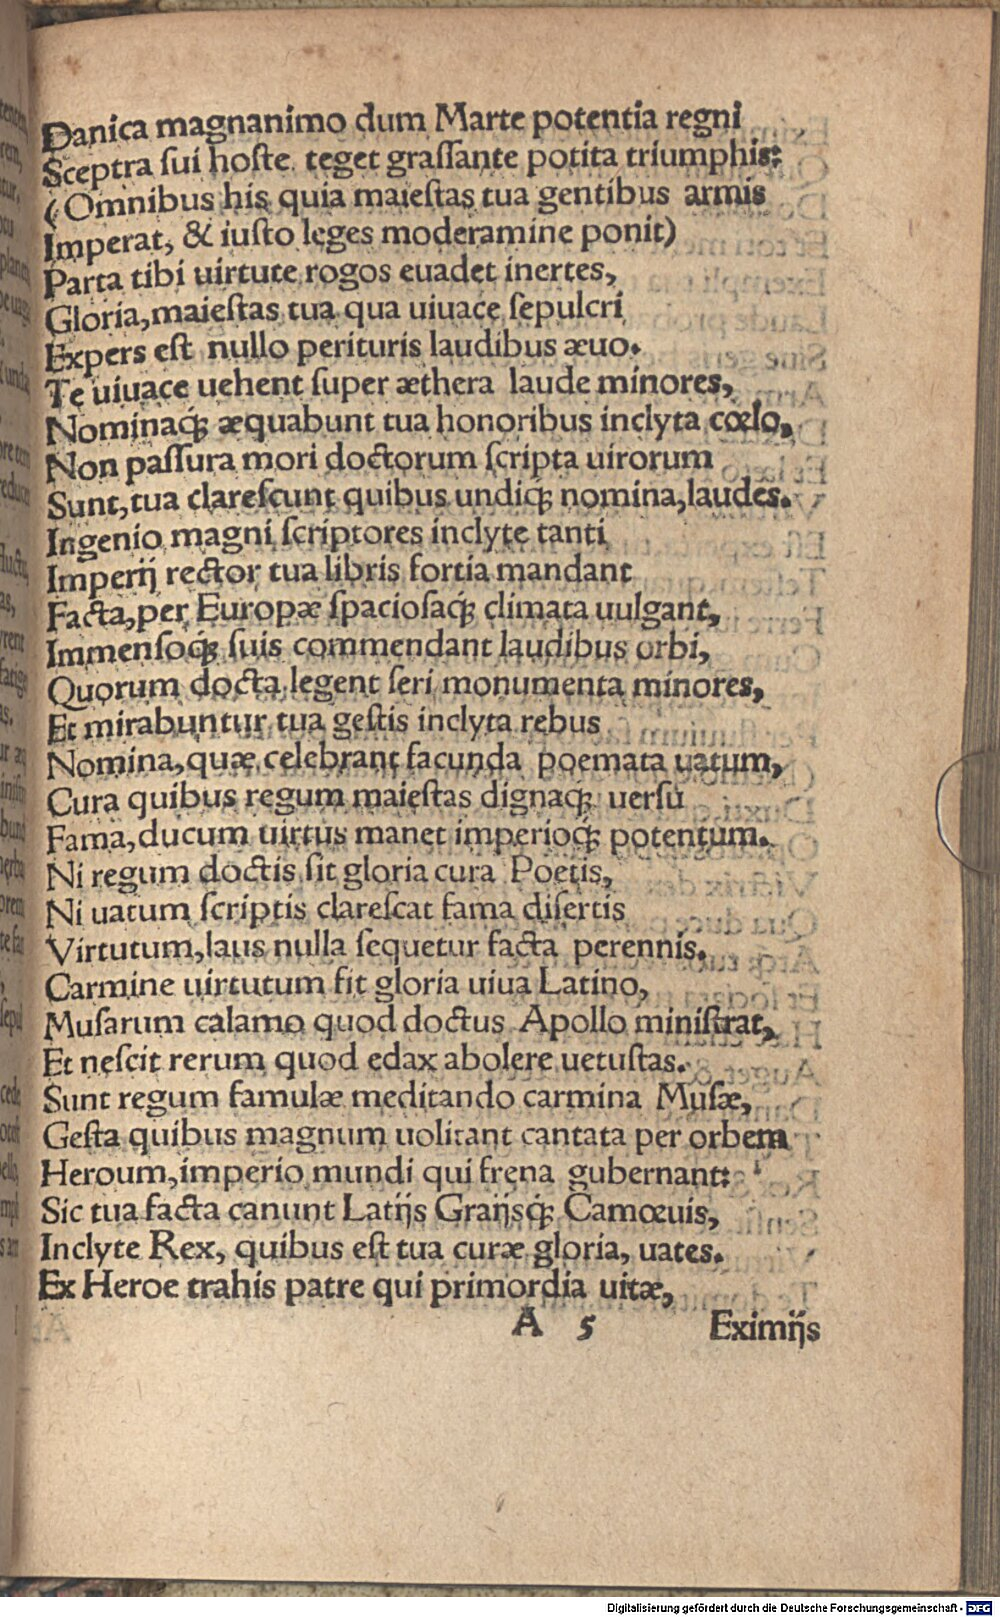 Danica magnanimo dum Marte potentia regni
Sceptra ſui hoſte. teget graſſante potita triumphis:
(Omnibus his quia maieſtas tua gentibus armis
Imperat, & iuſto leges moderamine ponit)
Parta tibi uirtute rogos euadet inertes,
Gloria, maieſtas tua qua uiuace ſepulcri
Expers eſt nullo perituris laudibus æuo.
Te uiuace uehent ſuper æthera laude minores,
Nominaqꝫ æquabunt tua honoribus inclyta cœlo,
Non paſſura mori doctorum ſcripta uirorum
Sunt, tua clareſcunt quibus undiqꝫ nomina, laudes.
Ingenio magni ſcriptores inclyte tanti
Imperij rector tua libris fortia mandant
Facta, per Europæ ſpacioſaqꝫ climata uulgant,
Immenſoqꝫ ſuis commendant laudibus orbi,
Quorum docta legent ſeri monumenta minores,
Et mirabuntur tua geſtis inclyta rebus
Nomina, quæ celebrant facunda poemata uatum,
Cura quibus regum maieſtas dignaqꝫ uerſu
Fama, ducum uirtus manet imperioqꝫ potentum.
Ni regum doctis ſit gloria cura Poetis,
Ni uatum ſcriptis clareſcat fama diſertis
Virtutum, laus nulla ſequetur facta perennis.
Carmine uirtutum fit gloria uiua Latino,
Muſarum calamo quod doctus Apollo miniſtrat,
Et neſcit rerum quod edax abolere uetuſtas.
Sunt regum famulæ meditando carmina Muſæ,
Geſta quibus magnum uolitant cantata per orbem
Heroum, imperio mundi qui frena gubernant:
Sic tua facta canunt Latijs Graijsqꝫ Camœuis,
Inclyte Rex, quibus eſt tua curæ gloria, uates.
Ex Heroe trahis patre qui primordia uitæ,
A 5 Eximijs
Digitalisierung gefördert durch die Deutsche Forschungsgemeinschaft - DFG